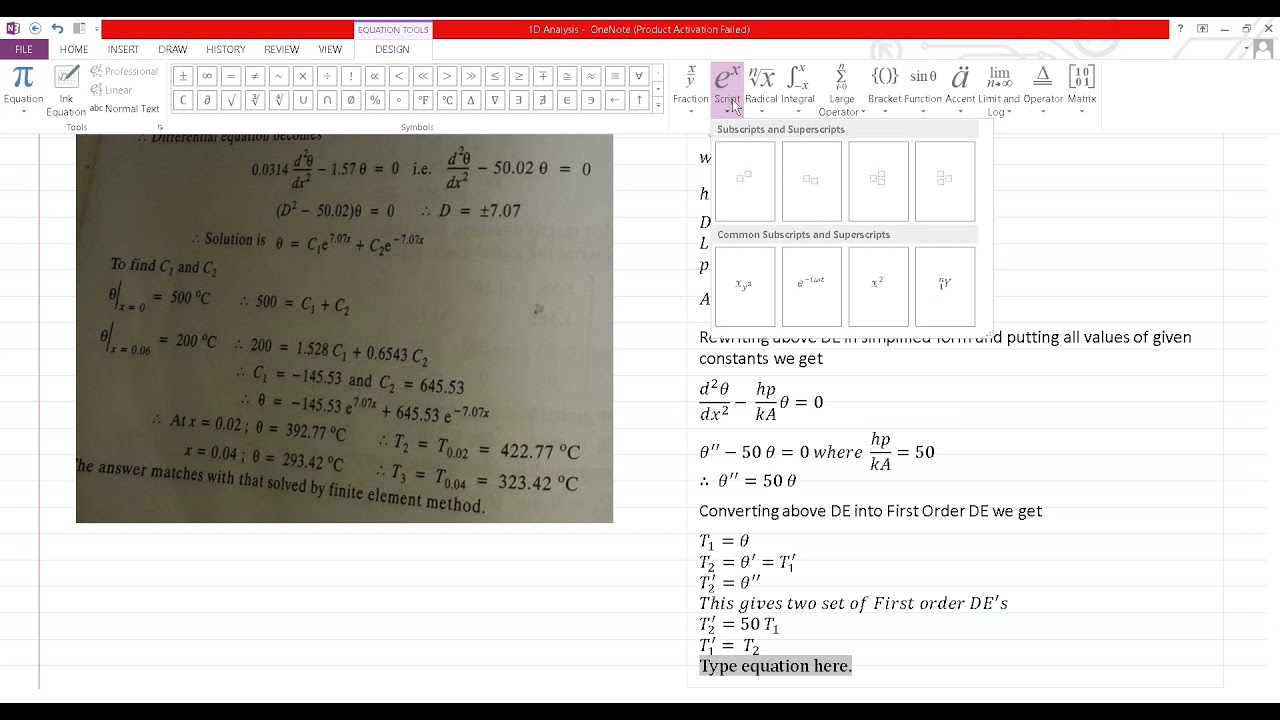 EQUATION TOOLS
1D Analysis - OneNote (Product Activation Failed)
FILE HOME INSERT DRAW HISTORY REVIEW VIEW DESIGN
π Equation
Ink Equation
Professional
Linear
abc Normal Text
Tools
± ∞ = ≠ ~ × ÷ ! ∝ < ≪ > ≫ ≤ ≥ ∓ ≅ ≈ ≡ ∀
∁ ∂ √ ∛ ∜ ∪ ∩ ∅ % ° °F °C ∆ ∇ ∃ ∄ ∈ ∋ ← ↑
Symbols
Fraction Script Radical Integral Large Operator Bracket Function Accent Limit and Log Operator Matrix
Subscripts and Superscripts
Common Subscripts and Superscripts
x_{y²} e^{-iωt} x² ⁿ₁Y
∴ Differential equation becomes
0.0314 d²θ/dx² − 1.57 θ = 0 i.e. d²θ/dx² − 50.02 θ = 0
(D² − 50.02)θ = 0 ∴ D = ±7.07
∴ Solution is θ = C₁e^{7.07x} + C₂e^{−7.07x}
To find C₁ and C₂
θ|ₓ₌₀ = 500 °C ∴ 500 = C₁ + C₂
θ|ₓ₌₀.₀₆ = 200 °C ∴ 200 = 1.528 C₁ + 0.6543 C₂
∴ C₁ = −145.53 and C₂ = 645.53
∴ θ = −145.53 e^{7.07x} + 645.53 e^{−7.07x}
∴ At x = 0.02 ; θ = 392.77 °C ∴ T₂ = T₀.₀₂ = 422.77 °C
x = 0.04 ; θ = 293.42 °C ∴ T₃ = T₀.₀₄ = 323.42 °C
The answer matches with that solved by finite element method.
w
h
D
L
p
A
Rewriting above DE in simplified form and putting all values of given
constants we get
d²θ/dx² − hp/kA θ = 0
θ′′ − 50 θ = 0 where hp/kA = 50
∴ θ′′ = 50 θ
Converting above DE into First Order DE we get
T₁ = θ
T₂ = θ′ = T₁′
T₂′ = θ′′
This gives two set of First order DE′s
T₂′ = 50 T₁
T₁′ = T₂
Type equation here.